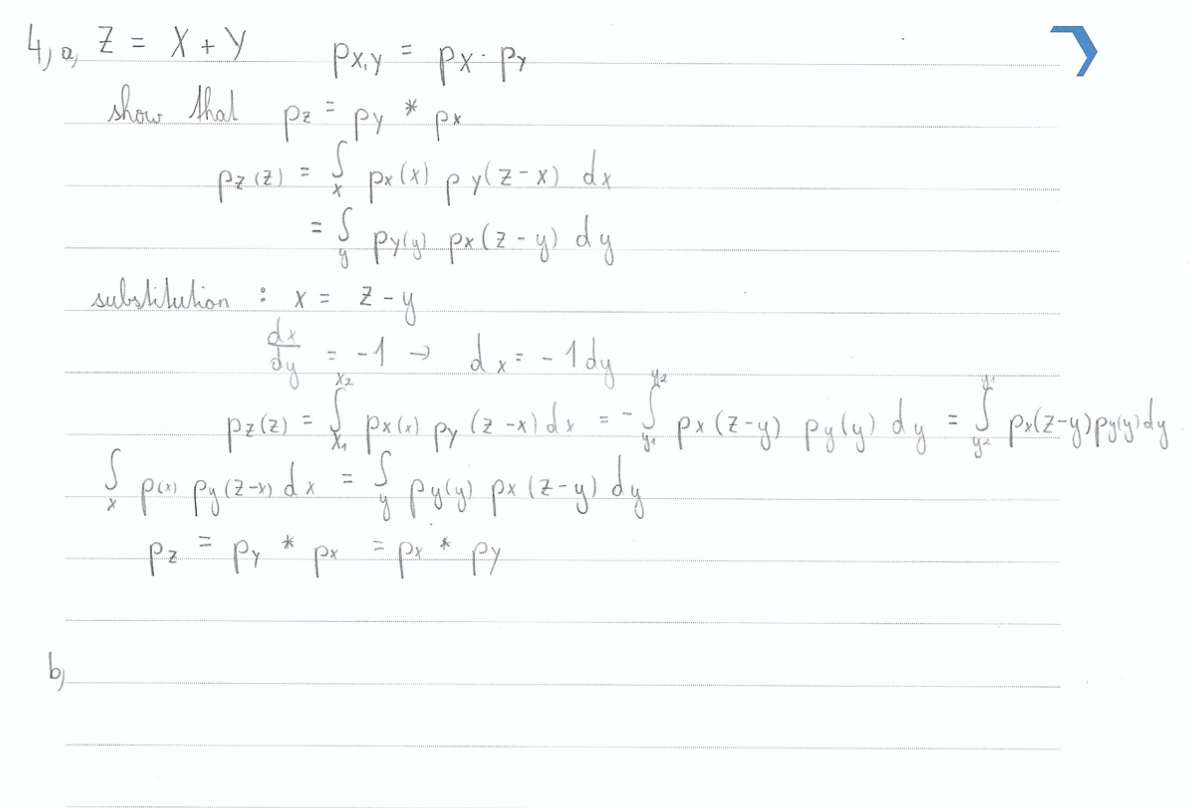 4, a, Z = X + Y p_{X,Y} = p_X · p_Y
show that p_Z = p_Y * p_X
p_Z(z) = ∫_x p_X(x) p_Y(z-x) dx
= ∫_y p_Y(y) p_X(z-y) dy
substitution : x = z - y
dx/dy = -1 → dx = -1dy
p_Z(z) = ∫_{x_1}^{x_2} p_X(x) p_Y(z-x) dx = -∫_{y_1}^{y_2} p_X(z-y) p_Y(y) dy = ∫_{y_2}^{y_1} p_X(z-y) p_Y(y) dy
∫_x p(x) p_Y(z-x) dx = ∫_y p_Y(y) p_X(z-y) dy
p_Z = p_Y * p_X = p_X * p_Y
b,